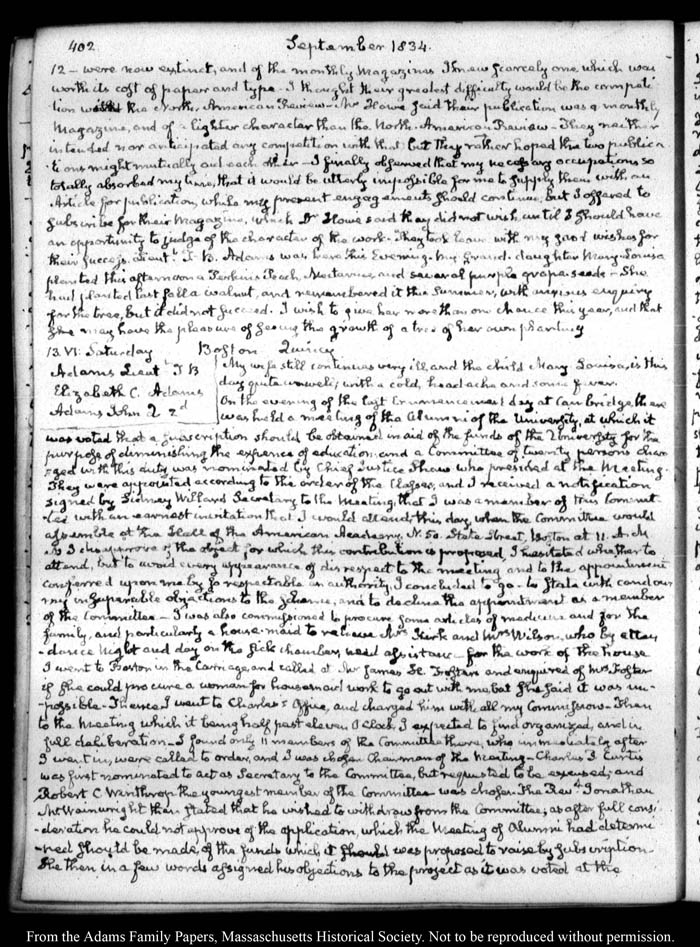 402 September 1834.
12 — were now extinct, and of the monthly Magazines I knew scarcely one which was
worth its cost of paper and type. I thought their greatest difficulty would be the competi-
tion with the North American Review. Mr Howe said their publication was a monthly
Magazine, and of a lighter character than the North-American Review — They neither
intended nor anticipated any competition with that but they rather hoped the two publica-
tions might mutually aid each other — I finally observed that my necessary occupations so
totally absorbed my time, that it would be utterly impossible for me to supply them with an
Article for publication, while my present engagements should continue, but I offered to
subscribe for their Magazine, which Dr Howe said they did not wish, until I should have
an opportunity to judge of the character of the work. They took leave with my good wishes for
their success. Lieutt. T. B. Adams was here this Evening. My Grand-daughter Mary-Louisa
planted this afternoon a Perkins Peach, Nectarine, and several purple grape-seeds — She
had planted last fall a walnut, and remembered it this Summer, with anxious enquiry
for the tree, but it did not succeed. I wish to give her more than one chance this year, and that
she may have the pleasure of seeing the growth of a tree of her own planting
13. VI. Saturday Boston Quincy
Adams Lieutt T B
Elizabeth C. Adams
Adams John Q 2d
My wife still continues very ill, and the child Mary Louisa, is this
day quite unwell; with a cold, head ache and some fever.
On the evening of the last Commencement day at Cambridge, there
was held a meeting of the Alumni of the University, at which it
was voted that a subscription should be obtained in aid of the funds of the University for the
purpose of diminishing the expence of education, and a Committee of twenty persons char-
=ged with this duty was nominated by Chief Justice Shaw who presided at the Meeting.
They were appointed according to the order of the Classes, and I received a notification
signed by Sidney Willard Secretary to the Meeting, that I was a member of this Commit-
tee with an earnest invitation that I would attend, this day, when the Committee would
assemble at the Hall of the American Academy, N. 50. State Street, Boston at 11. A.M.
As I disapprove of the object for which this contribution is proposed, I hesitated whether to
attend, but to avoid every appearance of disrespect to the meeting and to the appointment
conferred upon me by so respectable an authority, I concluded to go. to state with candour
my insuperable objections to the scheme, and to decline the appointment as a member
of the Committee — I was also commissioned to procure some articles of medicine and for the
family, and particularly a house-maid to relieve Mrs Kirk and Mrs Wilson, who by atten-
-dance night and day on the sick chamber, need assistance for the work of the house
I went to Boston in the Carriage and called at Mr James H. Foster's and enquired of Mrs Foster
if she could procure a woman for housemaid work to go out with me, but she said it was im-
-possible. Thence I went to Charles's Office, and charged him with all my Commissions. Then
to the Meeting which it being half past eleven O'Clock, I expected to find organized, and in
full deliberation. I found only 11 members of the Committee there, who immediately after
I went in, were called to order, and I was chosen Chairman of the Meeting. Charles P. Curtis
was first nominated to act as Secretary to the Committee, but requested to be excused; and
Robert C. Winthrop the youngest member of the Committee was chosen. The Revd. Jonathan
M. Wainwright then stated that he wished to withdraw from the Committee, as after full consi-
-deration he could not approve of the application, which the Meeting of Alumni had determi-
-ned should be made, of the funds which it should was proposed to raise by subscription
He then in a few words assigned his objections to the project as it was voted at the
From the Adams Family Papers, Massachusetts Historical Society. Not to be reproduced without permission.